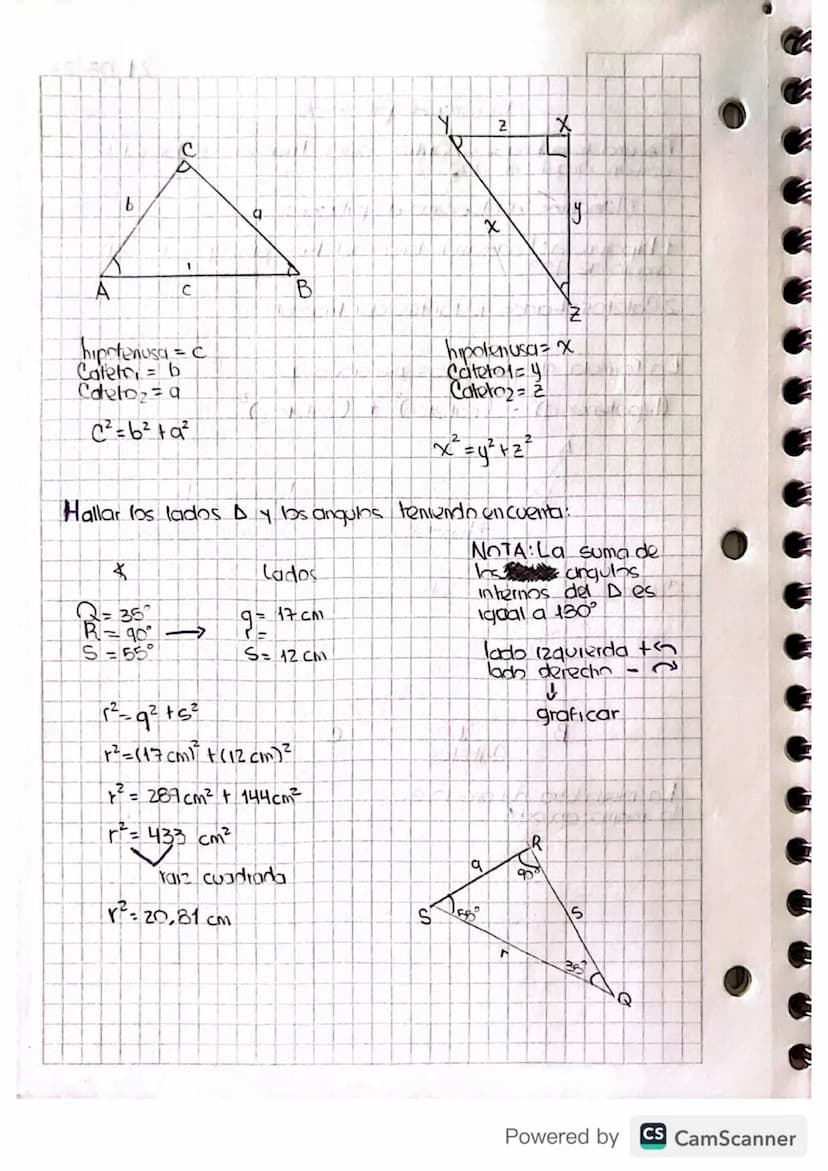 C
b
a
A
c
B
Y
z
X
x
y
Z
hipotenusa = c
Cateto₁ = b
Cateto₂ = a
C² = b² + a²
hipotenusa = x
Cateto1 = y
Cateto2 = z
x² = y² + z²
Hallar los lados Δ y los angulos teniendo en cuenta:
∡ lados
Q = 35° q = 17 cm
R = 90° → r =
S = 55° S = 12 cm
NOTA: La suma de
los angulos
internos del Δ es
igual a 180°
lado izquierda + ↶
lado derecho - ↷
↓
graficar
r² = q² + s²
r² = (17 cm)² + (12 cm)²
r² = 289 cm² + 144 cm²
r² = 433 cm²
raiz cuadrada
r² = 20,81 cm
R
q
90°
S
55°
s
r
35°
Q
Powered by CS CamScanner